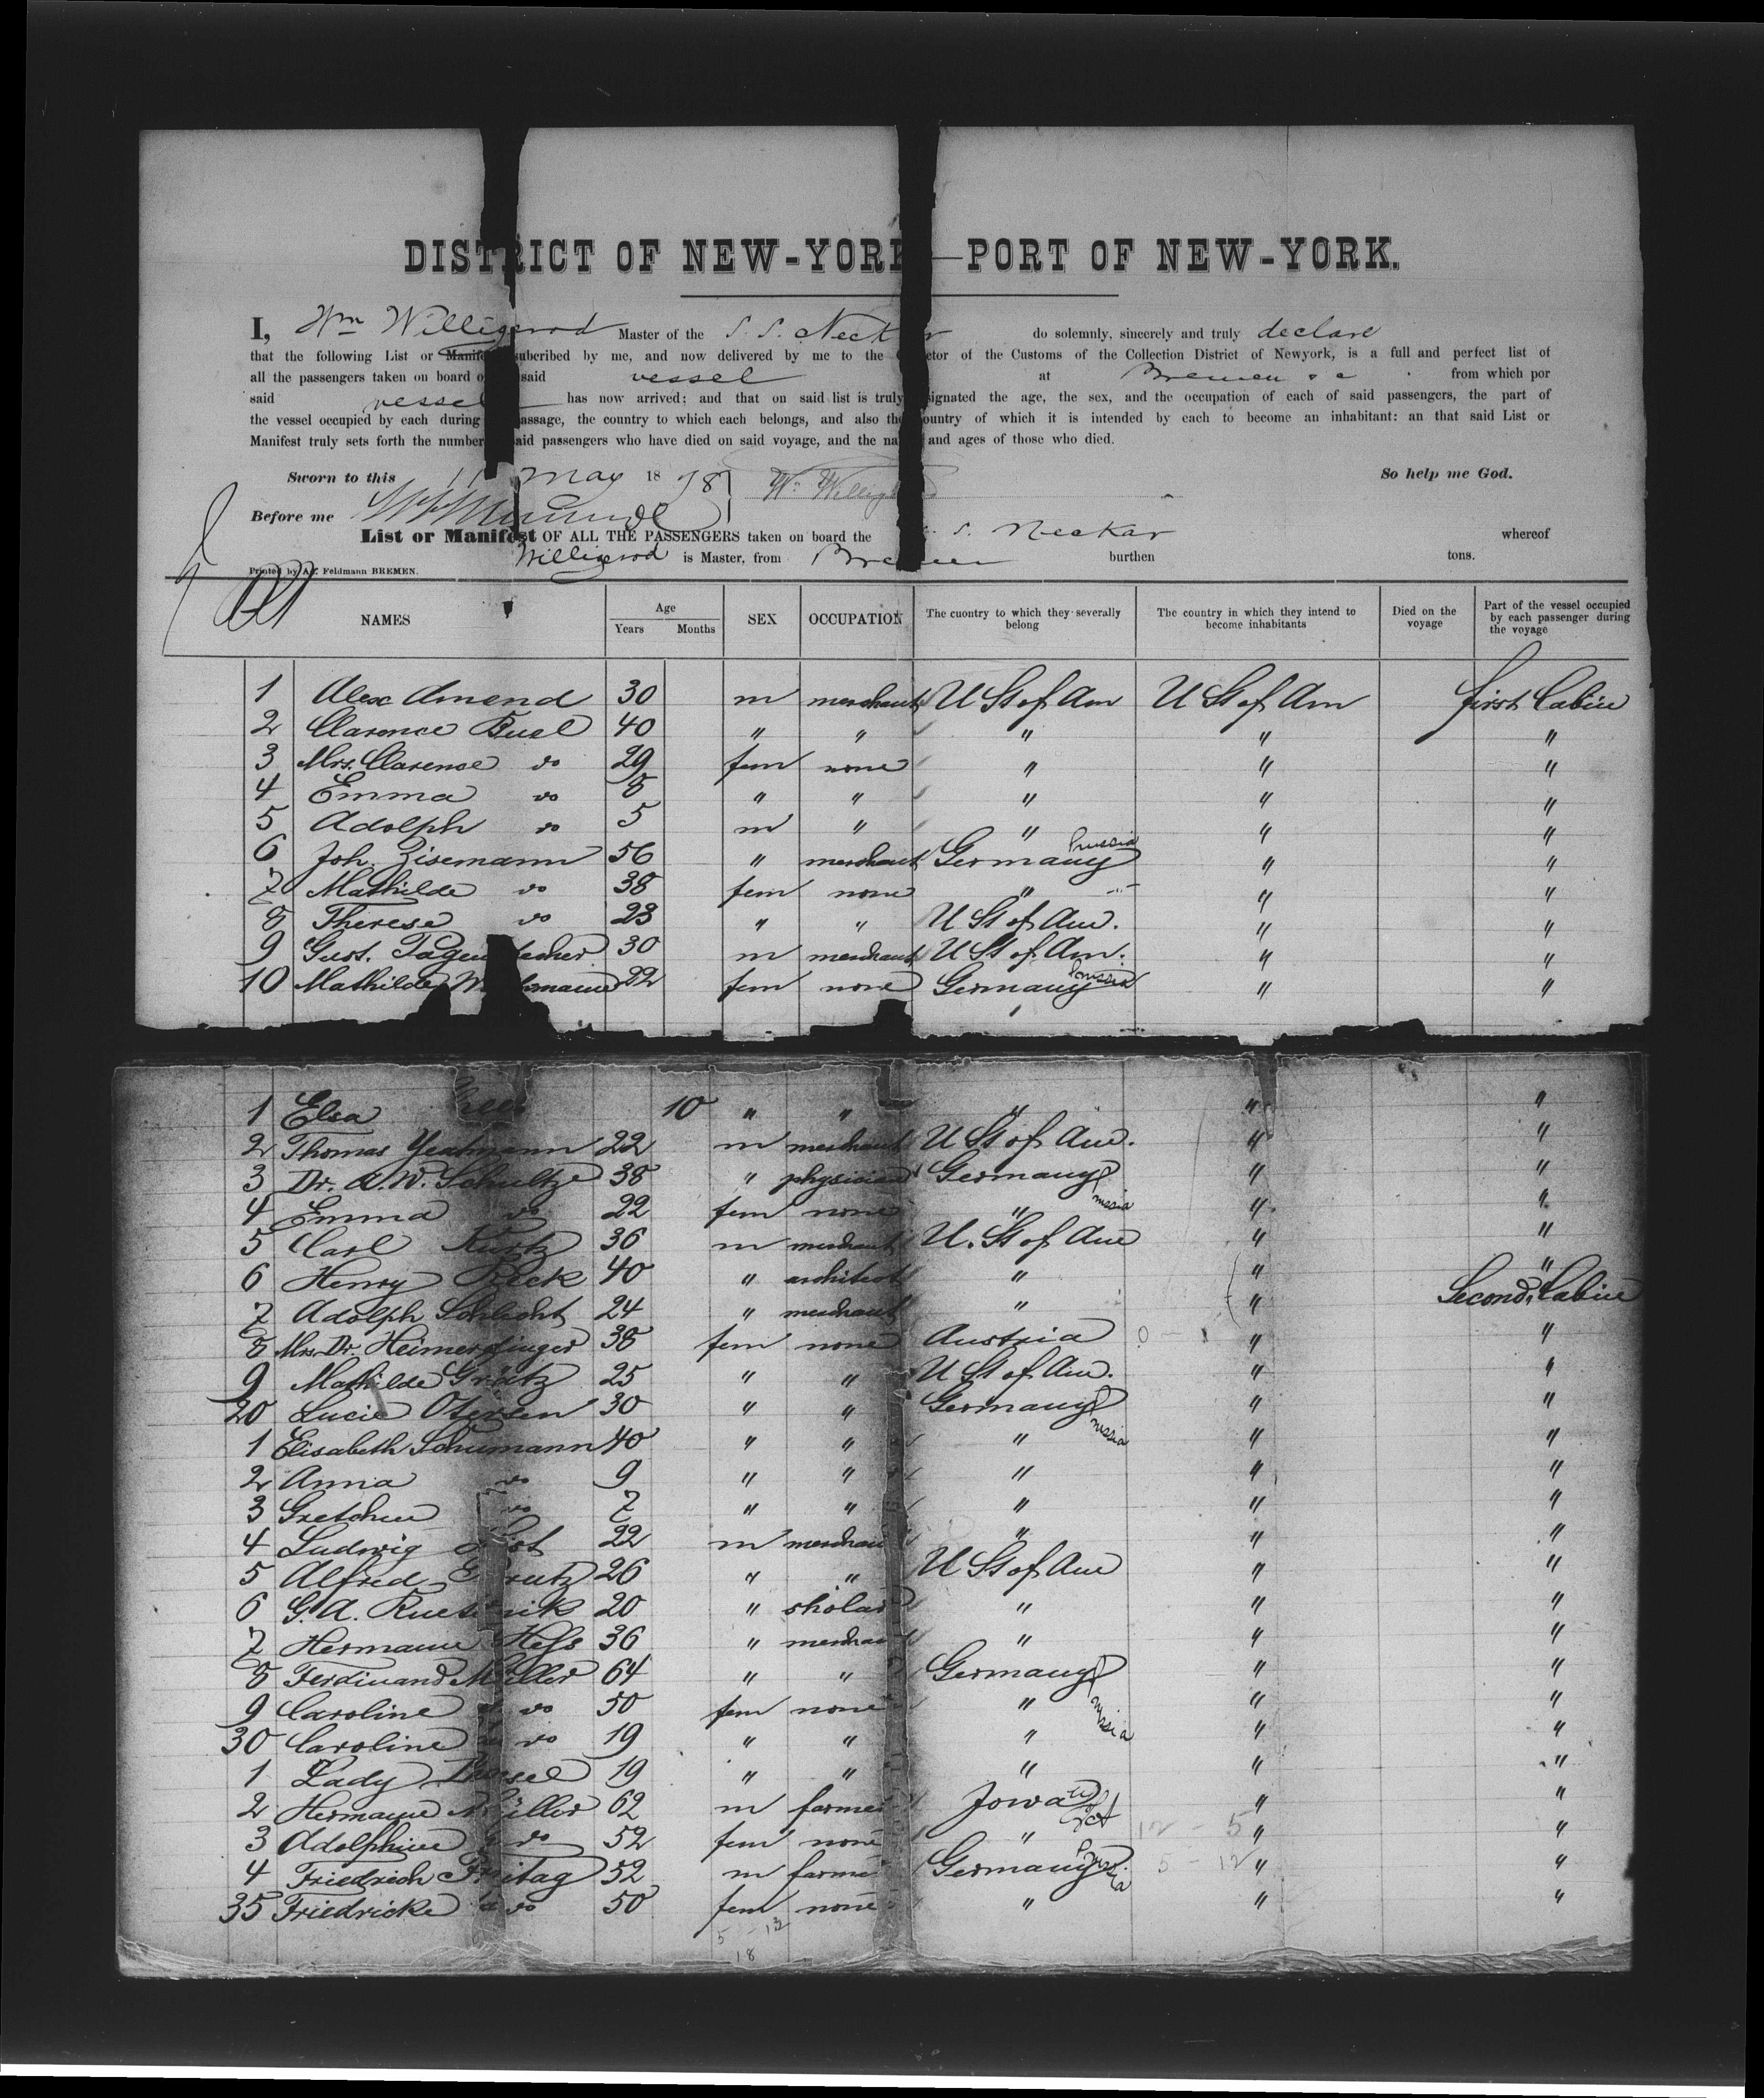 DISTRICT OF NEW-YORK—PORT OF NEW-YORK.
I, Wm Willigerod Master of the S. S. Neckar do solemnly, sincerely and truly declare
that the following List or Manifest suberibed by me, and now delivered by me to the Collector of the Customs of the Collection District of Newyork, is a full and perfect list of
all the passengers taken on board of said vessel at Bremen from which por
said vessel has now arrived; and that on said list is truly designated the age, the sex, and the occupation of each of said passengers, the part of
the vessel occupied by each during passage, the country to which each belongs, and also the country of which it is intended by each to become an inhabitant: an that said List or
Manifest truly sets forth the number said passengers who have died on said voyage, and the na and ages of those who died.
Sworn to this 11 May 1878 Wm Willigerod So help me God.
Before me
List or Manifest OF ALL THE PASSENGERS taken on board the S. Neckar whereof
Willigerod is Master, from Bremen burthen tons.
Printed by Ad. Feldmann BREMEN.
NAMES Age Years Months SEX OCCUPATION The cuontry to which they severally belong The country in which they intend to become inhabitants Died on the voyage Part of the vessel occupied by each passenger during the voyage
1 Alex Amend 30 m merchant U St of Am U St of Am first Cabin
2 Clarence Buel 40 " " " " "
3 Mrs. Clarence do 29 fem none " " "
4 Emma do 8 " " " " "
5 Adolph do 5 m " " " "
6 Joh. Zisemann 56 " merchant Germany Prussia " "
7 Mathilde do 38 fem none " " "
8 Therese do 23 " " U St of Am. " "
9 Gust. 30 m merchant U St of Am. " "
10 Mathilde 22 fem none Germany Prussia " "
1 Elsa 10 " " " " "
2 Thomas Yeatmann 22 m merchant U St of Am. " "
3 Dr. A. W. Schultze 38 " physician Germany " "
4 Emma do 22 fem none " " "
5 Carl Kurtz 36 m merchant U. St of Am " "
6 Henry Reck 40 " architect " " "
7 Adolph Schlecht 24 " merchant " " Second Cabin
8 Mrs. Dr. Heimerdinger 38 fem none Austria " "
9 Mathilde Grätz 25 " " U St of Am. " "
20 Lucie Otersen 30 " " Germany " "
1 Elisabeth Schumann 40 " " " " "
2 Anna do 9 " " " " "
3 Gretchen do 7 " " " " "
4 Ludwig 22 m merchant " " "
5 Alfred 26 " " U St of Am " "
6 G. A. 20 " sholar " " "
7 Hermann Hess 36 " merchant " " "
8 Ferdinand Müller 64 " " Germany " "
9 Caroline do 50 fem none " " "
30 Caroline do 19 " " " " "
1 Lady 19 " " " " "
2 Hermann Müller 62 m farmer Jowa " "
3 Adolphine do 52 fem none " " "
4 Friedrich Freitag 52 m farmer Germany " "
35 Friedricke do 50 fem none " " "